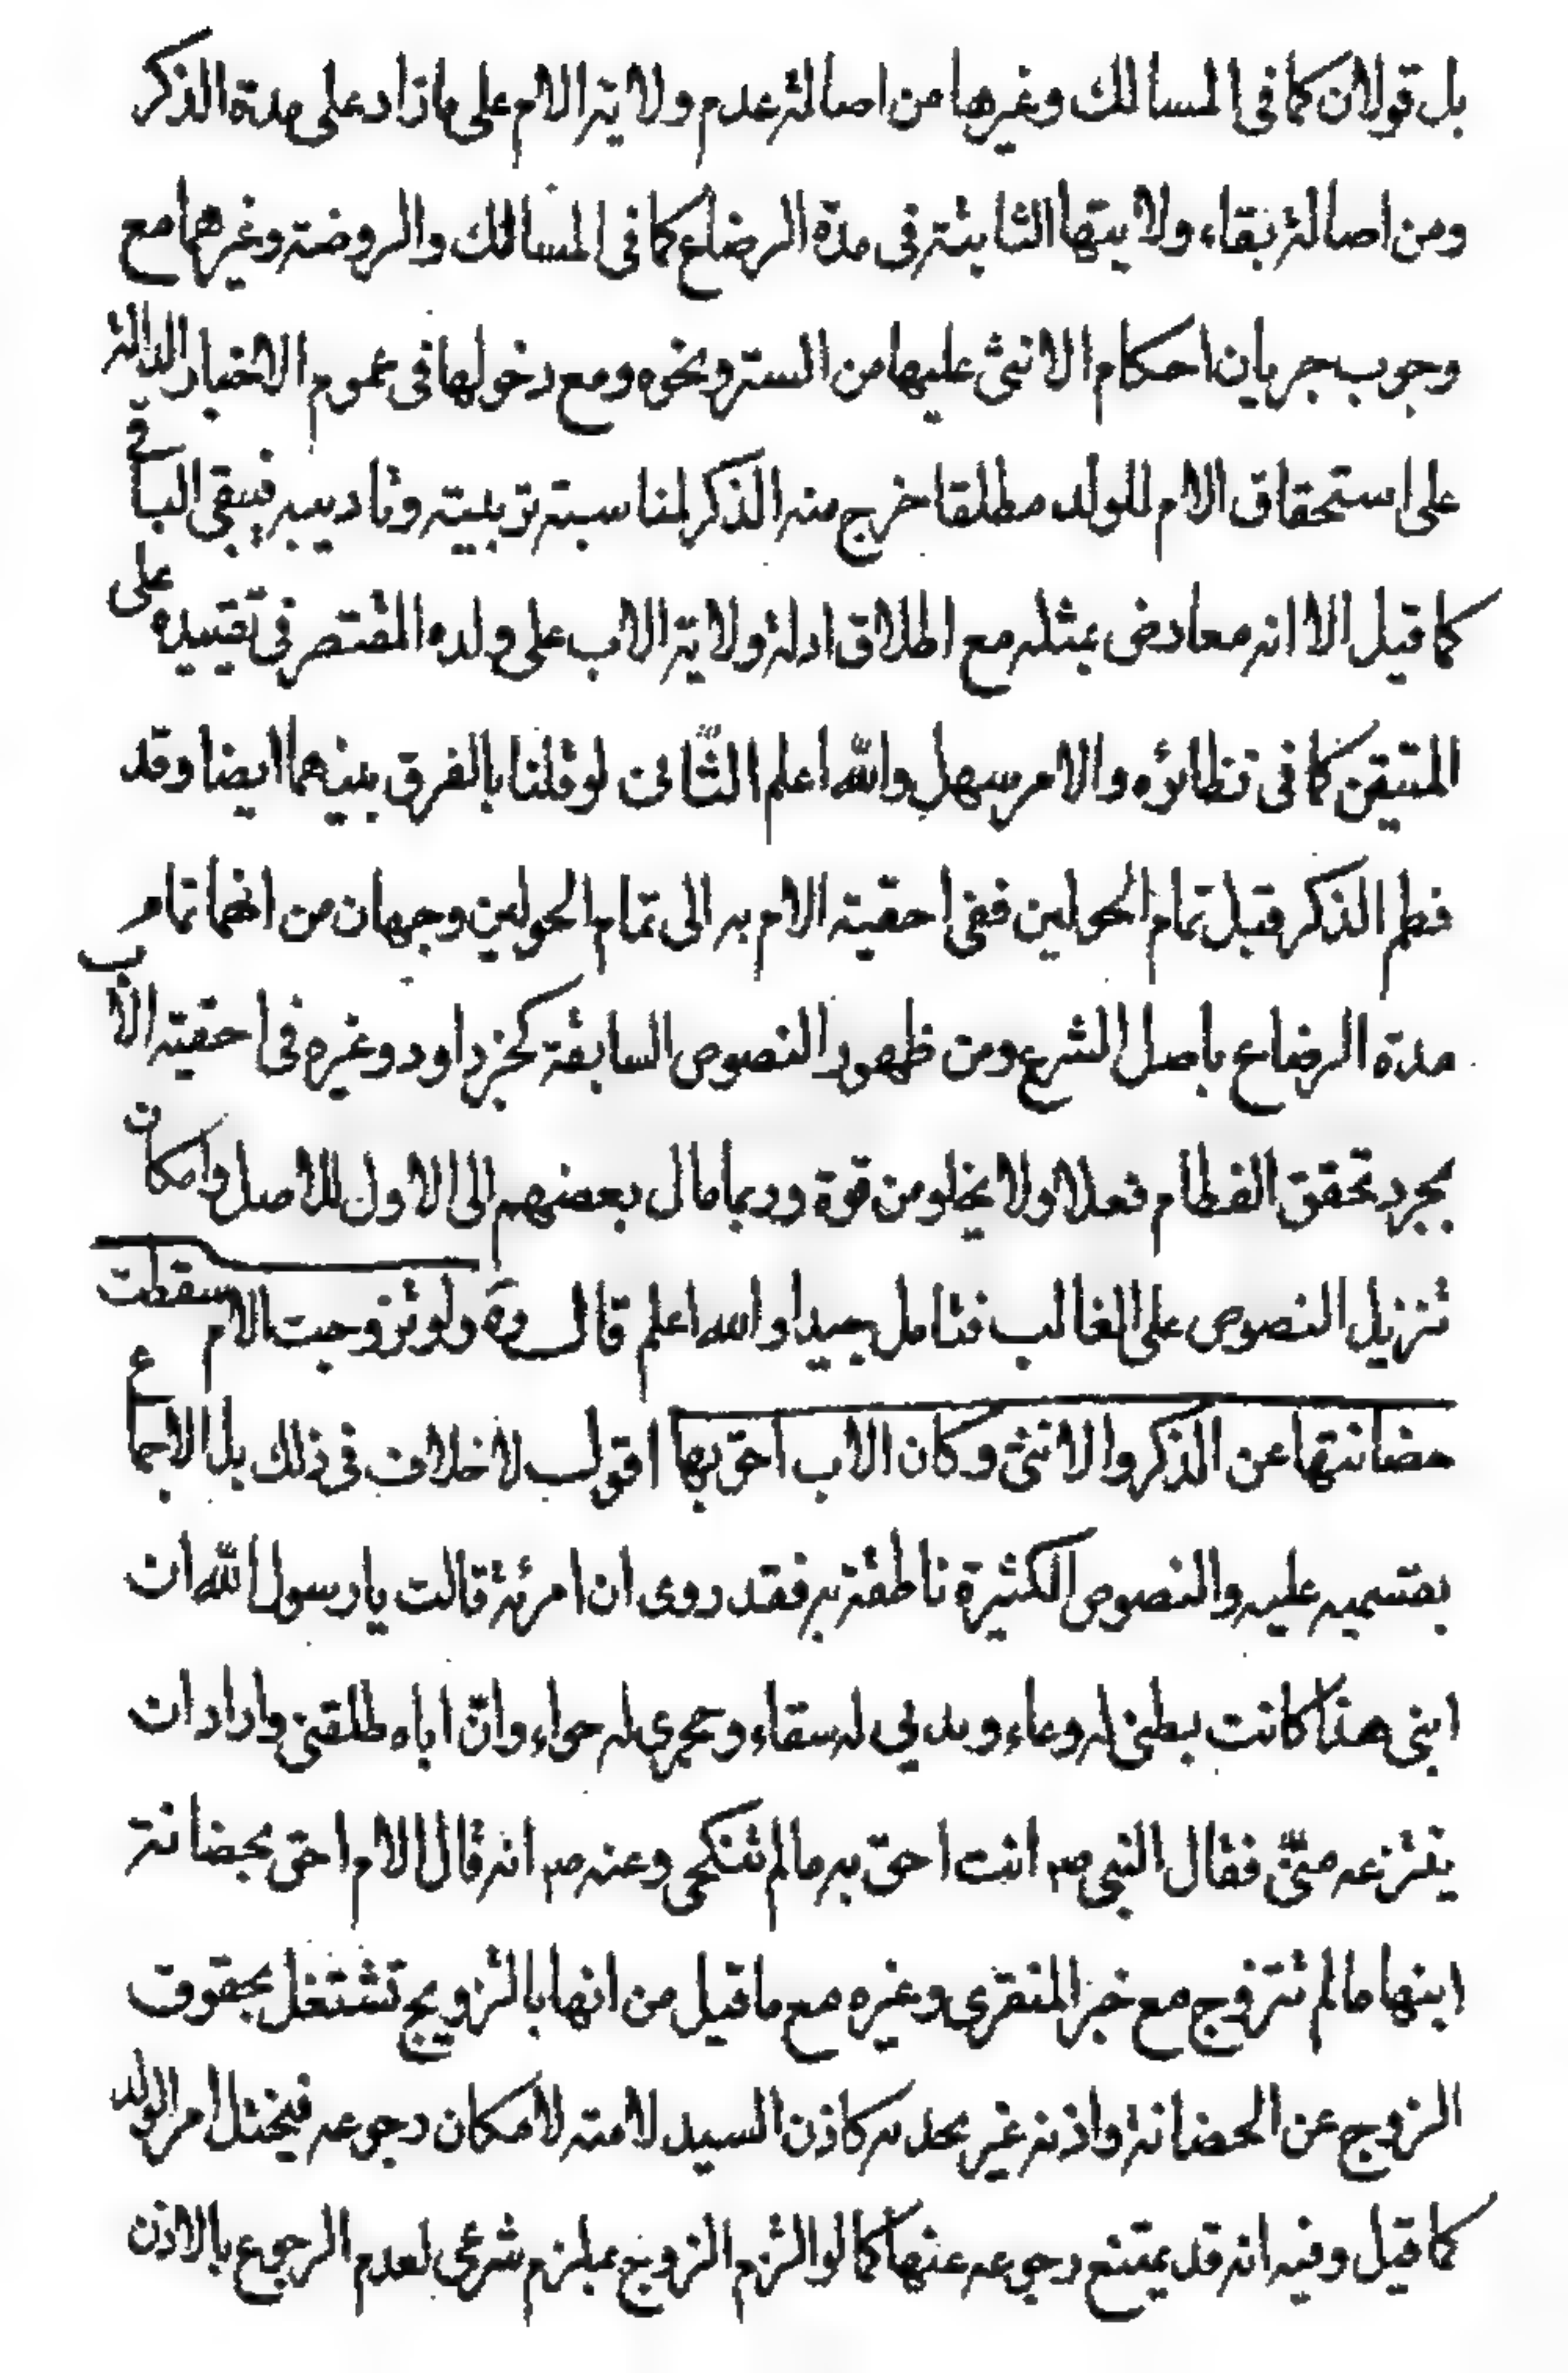 بل قولان كما فى المسالك وغيرها من اصالة عدم ولاية الام على ما زاد على مدة الذكر
ومن اصالة بقاء ولايتها الثابتة فى مدة الرضاع كما فى المسالك والروضة وغيرهما مع
وجوب جريان احكام الانثى عليها من الستر ونحوه ومع دخولها فى عموم الاخبار الدالة
على استحقاق الام للولد مطلقا خرج منه الذكر لمناسبة تربيته وتاديبه فيبقى الباقى
كما قيل الا انه معارض بمثله مع اطلاق ادلة ولاية الاب على ولده المقتصر فى تقييده على
المتيقن كما فى نظائره والامر سهل والله اعلم الثانى لو قلنا بالفرق بينهما ايضا وقد
فطم الذكر قبل تمام الحولين ففى احقية الام به الى تمام الحولين وجهان من انهما تمام
مدة الرضاع باصل الشرع ومن ظهور النصوص السابقة كخبر داود وغيره فى احقية الاب
بمجرد تحقق الفطام فعلا ولا يخلو من قوة وربما مال بعضهم الى الاول للاصل وامكان
تنزيل النصوص على الغالب فتامل جيدا والله اعلم قال ره ولو تزوجت الام سقطت
حضانتها عن الذكر والانثى وكان الاب احق بها اقول لا خلاف فى ذلك بل الاجماع
بقسميه عليه والنصوص الكثيرة ناطقة به فقد روى ان امرئة قالت يا رسول الله ان
ابنى هذا كانت بطنى له وعاء وبديي له سقاء وحجرى له حواء وانّ اباه طلقنى واراد ان
ينتزعه منّى فقال النبى ص انت احقّ به ما لم تنكحى وعنه ص انه قال الام احق بحضانة
ابنها ما لم تتزوج مع خبر المنقرى وغيره مع ما قيل من انها بالتزويج تشتغل بحقوق
الزوج عن الحضانة واذنه غير مجد به كاذن السيد لامته لامكان رجوعه فيختل امر الولد
كما قيل وفيه انه قد يمتنع رجوعه عنها كما لو التزم الزوج بملزم شرعى لعدم الرجوع بالاذن